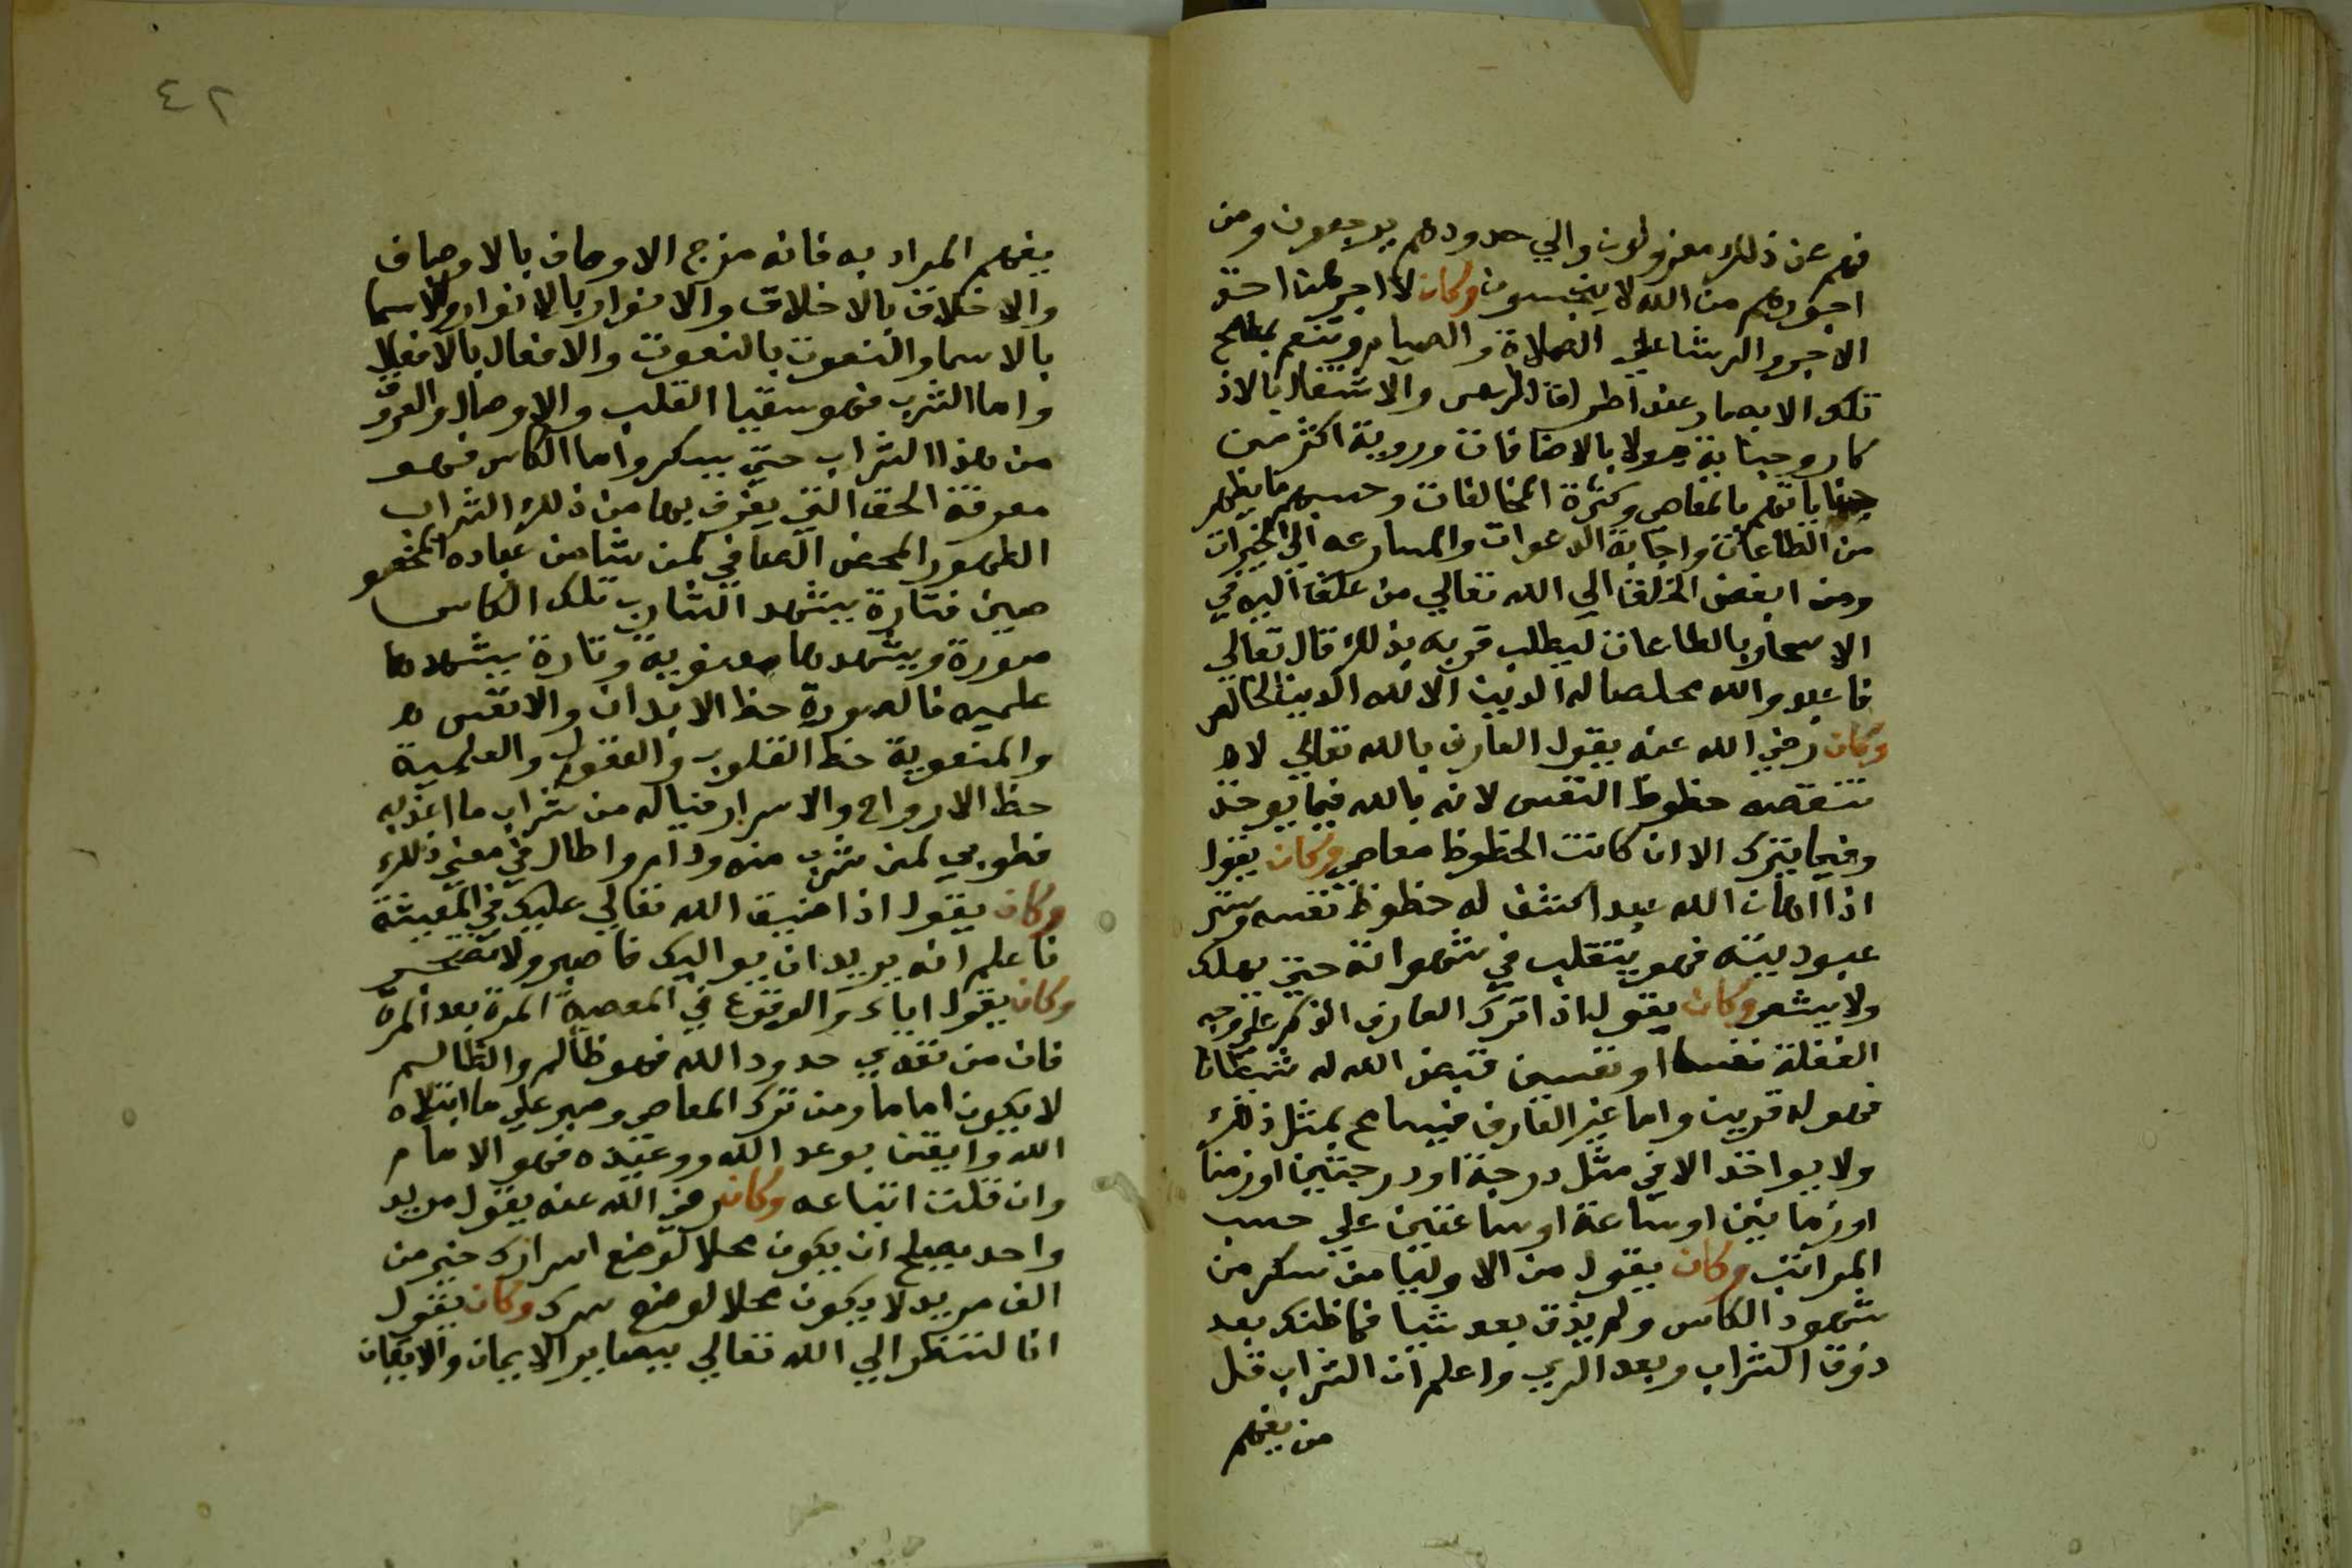 فهم عن ذلك معزولون والي حدودهم يرجعون ومن
اجورهم من الله لا يبخسون وكان لا اجر لمن اخذ
الاجر والرشا علي الصلاة والصيام وتنعم بمطامح
تلك الابصار عند اطراق الرءس والاشتغال بالاذ
كار وجناية هولا بالاضافات وروية اكثر من
جناياتهم بالمعاصي وكثرة المخالفات وحسبهم ما يظهر
من الطاعات واجابة الدعوات والمسارعه الي الخيرات
ومن ابغض الخلق الي الله تعالي من تملق اليه في
الاسحار بالطاعات ليطلب قربه بذلك قال تعالي
فاعبدوا الله مخلصا له الدين الا لله الدين الخالص
وكان رضي الله عنه يقول العارف بالله تعالي لا
تنقصه حظوظ النفس لانه بالله فيما يوخذ
وفيما يترك الا ان كانت الحظوظ معاصي وكان يقول
اذا اهان الله عبدا كشف له حظوظ نفسه وستر
عبوديته فهو يتقلب في شهواته حتي يهلك
ولا يشعر وكان يقول اذا ترك العارف الذكر علي وجه
الغفلة نفسا او نفسين قيض الله له شيطانا
فهو له قرين واما غير العارف فيسامح بمثل ذلك
ولا يواخذ الا في مثل درجة او درجتين او زمنا
او زمانين او ساعة او ساعتين علي حسب
المراتب وكان يقول من الاوليا من سكر من
شهود الكاس ولم يذق بعد شيا فما ظنك بعد
ذوق الشراب وبعد الري واعلم ان الشراب قل
من يفهم
٤٢
يفهم المراد به فانه مزج الاوصاف بالاوصاف
والاخلاق بالاخلاق والانوار بالانوار والاسما
بالاسما والنعوت بالنعوت والافعال بالافعال
واما الشرب فهو سقيا القلب والاوصال والعروق
من هذا الشراب حتي يسكر واما الكاس فهو
معرفة الحق التي يغرف بها من ذلك الشراب
الطهور المحض الصافي لمن شا من عباده المخصو
صين فتارة يشهد الشارب تلك الكاس
صورة ويشهدها معنوية وتارة يشهدها
علميه فالصورة حظ الابدان والانفس
والمنعوية حظ القلوب والعقول والعلمية
حظ الارواح والاسرار فياله من شراب ما اعذبه
فطوبي لمن شرب منه ودام واطال في معني ذلك
وكان يقول اذا ضيق الله تعالي عليك في المعيشة
فاعلم انه يريد ان يواليك فاصبر ولا تضجر
وكان يقول اياك والوقوع في المعصية المرة بعد المرة
فان من تعدي حدود الله فهو ظالم والظالم
لا يكون اماما ومن ترك المعاصي وصبر علي ما ابتلاه
الله وايقن بوعد الله ووعيده فهو الامام
وان قلت اتباعه وكان رضي الله عنه يقول مريد
واحد يصلح ان يكون محلا لوضع اسرارك خير من
الف مريد لا يكون محلا لوضع سرك وكان يقول
انا لننظر الي الله تعالي ببصاير الايمان والايقان